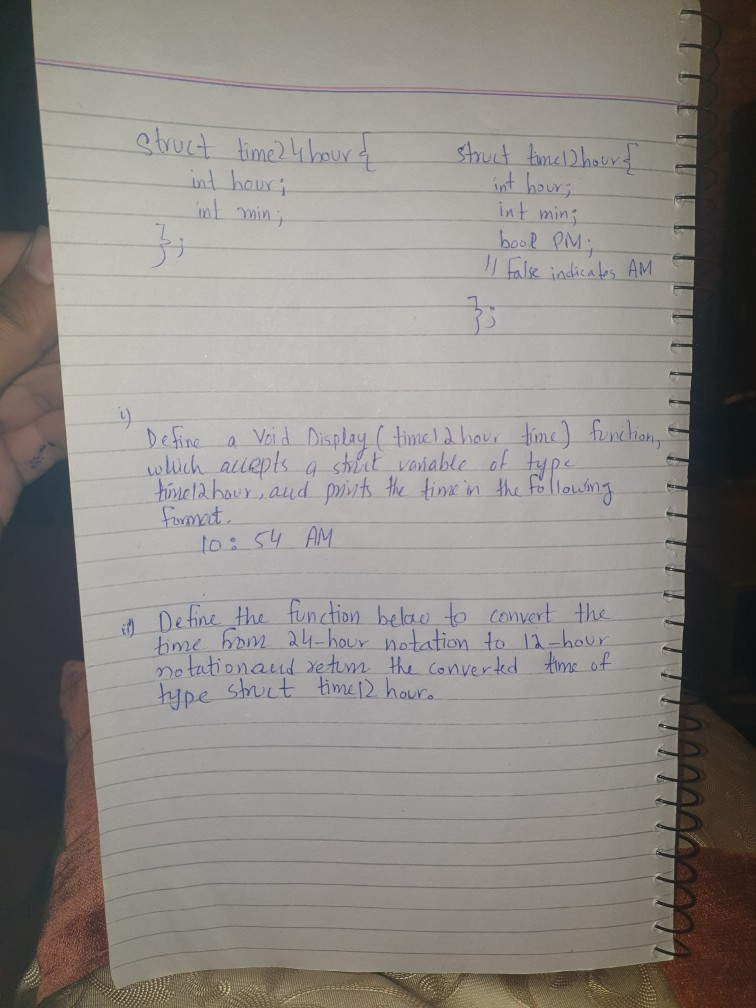 struct time24hour{
int hour;
int min;
};
struct time12hour{
int hour;
int min;
bool PM;
// False indicates AM
};
i)
Define a Void Display (time12hour time) function,
which accepts a struct variable of type
time12hour, and prints the time in the following
format.
10:54 AM
ii) Define the function below to convert the
time from 24-hour notation to 12-hour
notation and return the converted time of
type struct time12 hour.